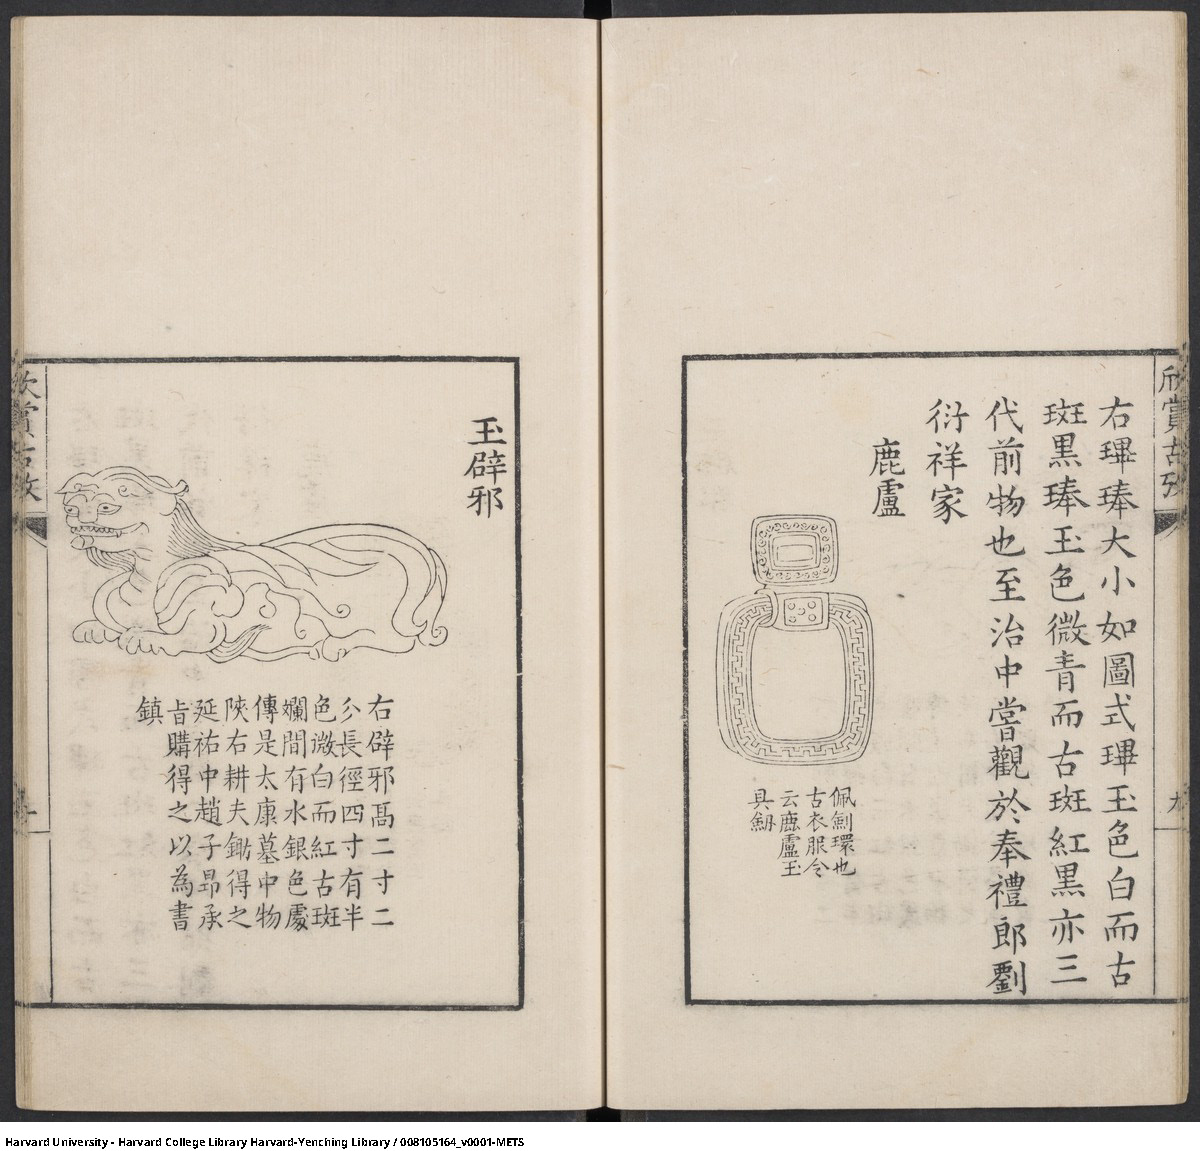 欣賞古攷
九
右㻫琫大小如圖式㻫玉色白而古
斑黒琫玉色微青而古斑紅黒亦三
代前物也至治中嘗觀於奉禮郎劉
衍祥家
鹿盧
佩劍環也
古衣服令
云鹿盧玉
具劒
玉辟邪
右辟邪髙二寸二
分長徑四寸有半
色微白而紅古斑
斕間有水銀色處
傳是太康墓中物
陝右耕夫鋤得之
延祐中趙子昂承
旨購得之以為書
鎮
欣賞古攷
Harvard University - Harvard College Library Harvard-Yenching Library / 008105164_v0001-METS